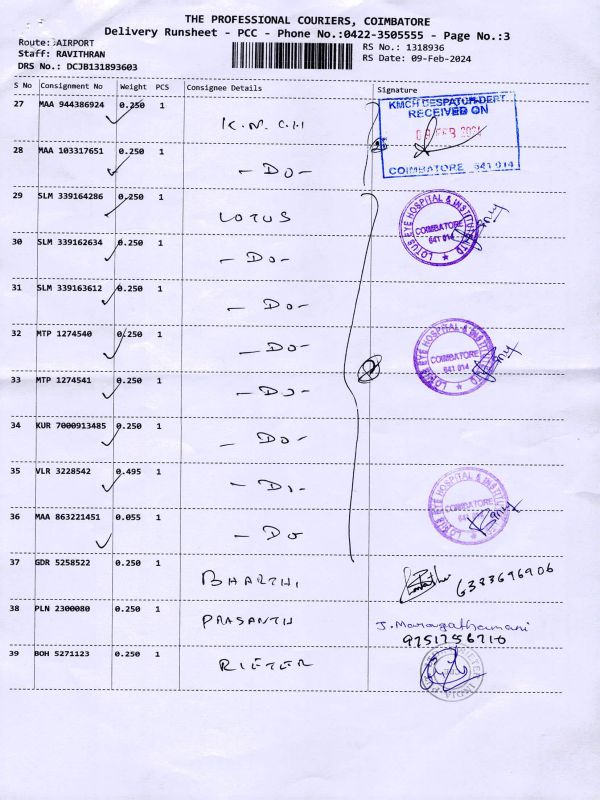 THE PROFESSIONAL COURIERS, COIMBATORE
Delivery Runsheet - PCC - Phone No.:0422-3505555 - Page No.:3
Route: AIRPORT
Staff: RAVITHRAN
DRS No.: DCJB131893603
RS No.: 1318936
RS Date: 09-Feb-2024
S No Consignment No Weight PCS Consignee Details Signature
27 MAA 944386924 0.250 1 K.M.C.H
KMCH DESPATCH DEPT
RECEIVED ON
09 FEB 2024
COIMBATORE 641 014
28 MAA 103317651 0.250 1 - Do -
29 SLM 339164286 0.250 1 LOTUS
LOTUS EYE HOSPITAL & INSTITUTE LTD
COIMBATORE
641 014
30 SLM 339162634 0.250 1 - Do -
31 SLM 339163612 0.250 1 - Do -
32 MTP 1274540 0.250 1 - Do -
LOTUS EYE HOSPITAL & INSTITUTE LTD
COIMBATORE
641 014
33 MTP 1274541 0.250 1 - Do -
34 KUR 7000913485 0.250 1 - Do -
35 VLR 3228542 0.495 1 - Do -
LOTUS EYE HOSPITAL & INSTITUTE
COIMBATORE
641 014
36 MAA 863221451 0.055 1 - Do
37 GDR 5258522 0.250 1 BHARTHI 6383696906
38 PLN 2300080 0.250 1 PRASANTH J. Maragathamani
9751756710
39 BOH 5271123 0.250 1 RIETER